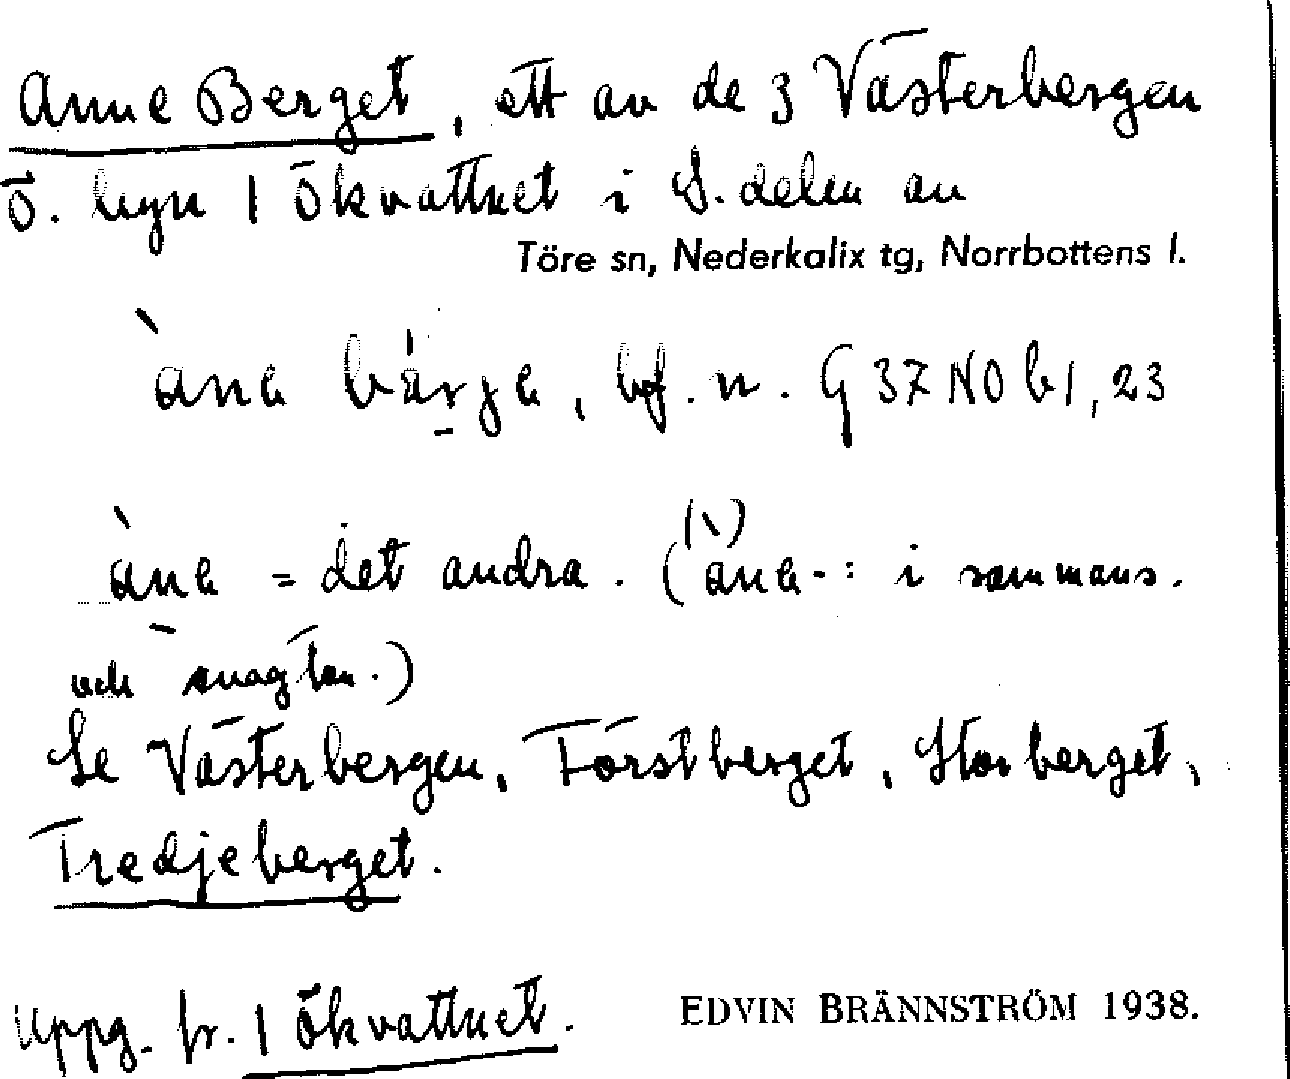 Anne Berget, ett av de 3 Västerbergen
ö. byn 1 Ökvattnet i S. delen av
Töre sn, Nederkalix tg, Norrbottens l.
bf. n. G 37 NO b1, 23
= det andra. ( i sammans.
och
Se Västerbergen, Förstberget, Storberget,
Tredjeberget.
Uppg. fr. 1 Ökvattnet.
EDVIN BRÄNNSTRÖM 1938.